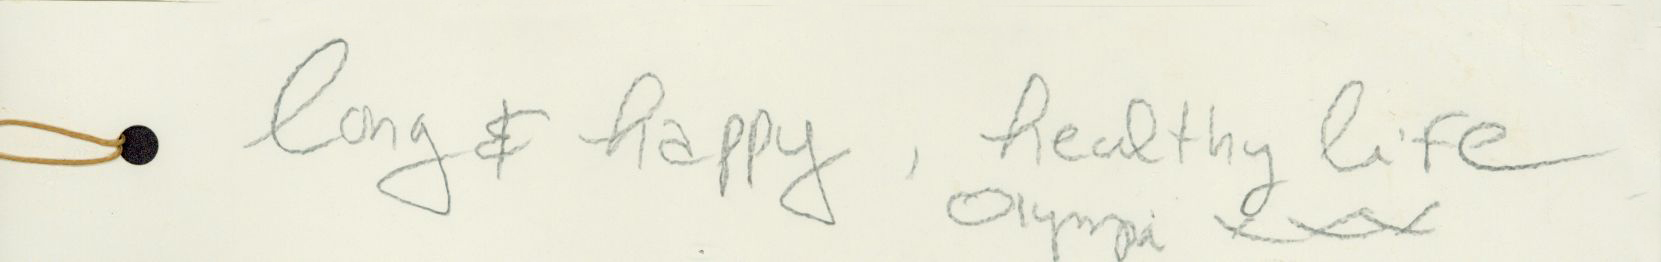 long & happy, healthy life
Olympia xxx